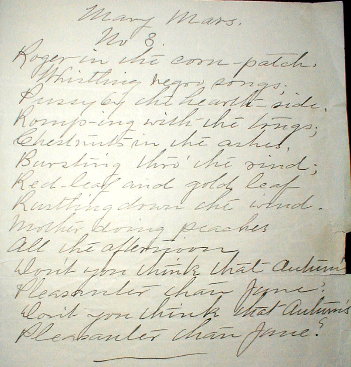 Mary Mars.
No 8
Roger in the corn-patch.
Whistling negro songs;
Pussy by the hearth-side.
Romp-ing with the tongs;
Chestnuts in the ashes
Bursting thro' the rind;
Red-leaf and gold leaf
Rustling down the wind.
Mother doing peaches
All the afternoon
Don't you think that Autumn's
Pleasanter than June?
Don't you think that Autumn's
Pleasanter than June?